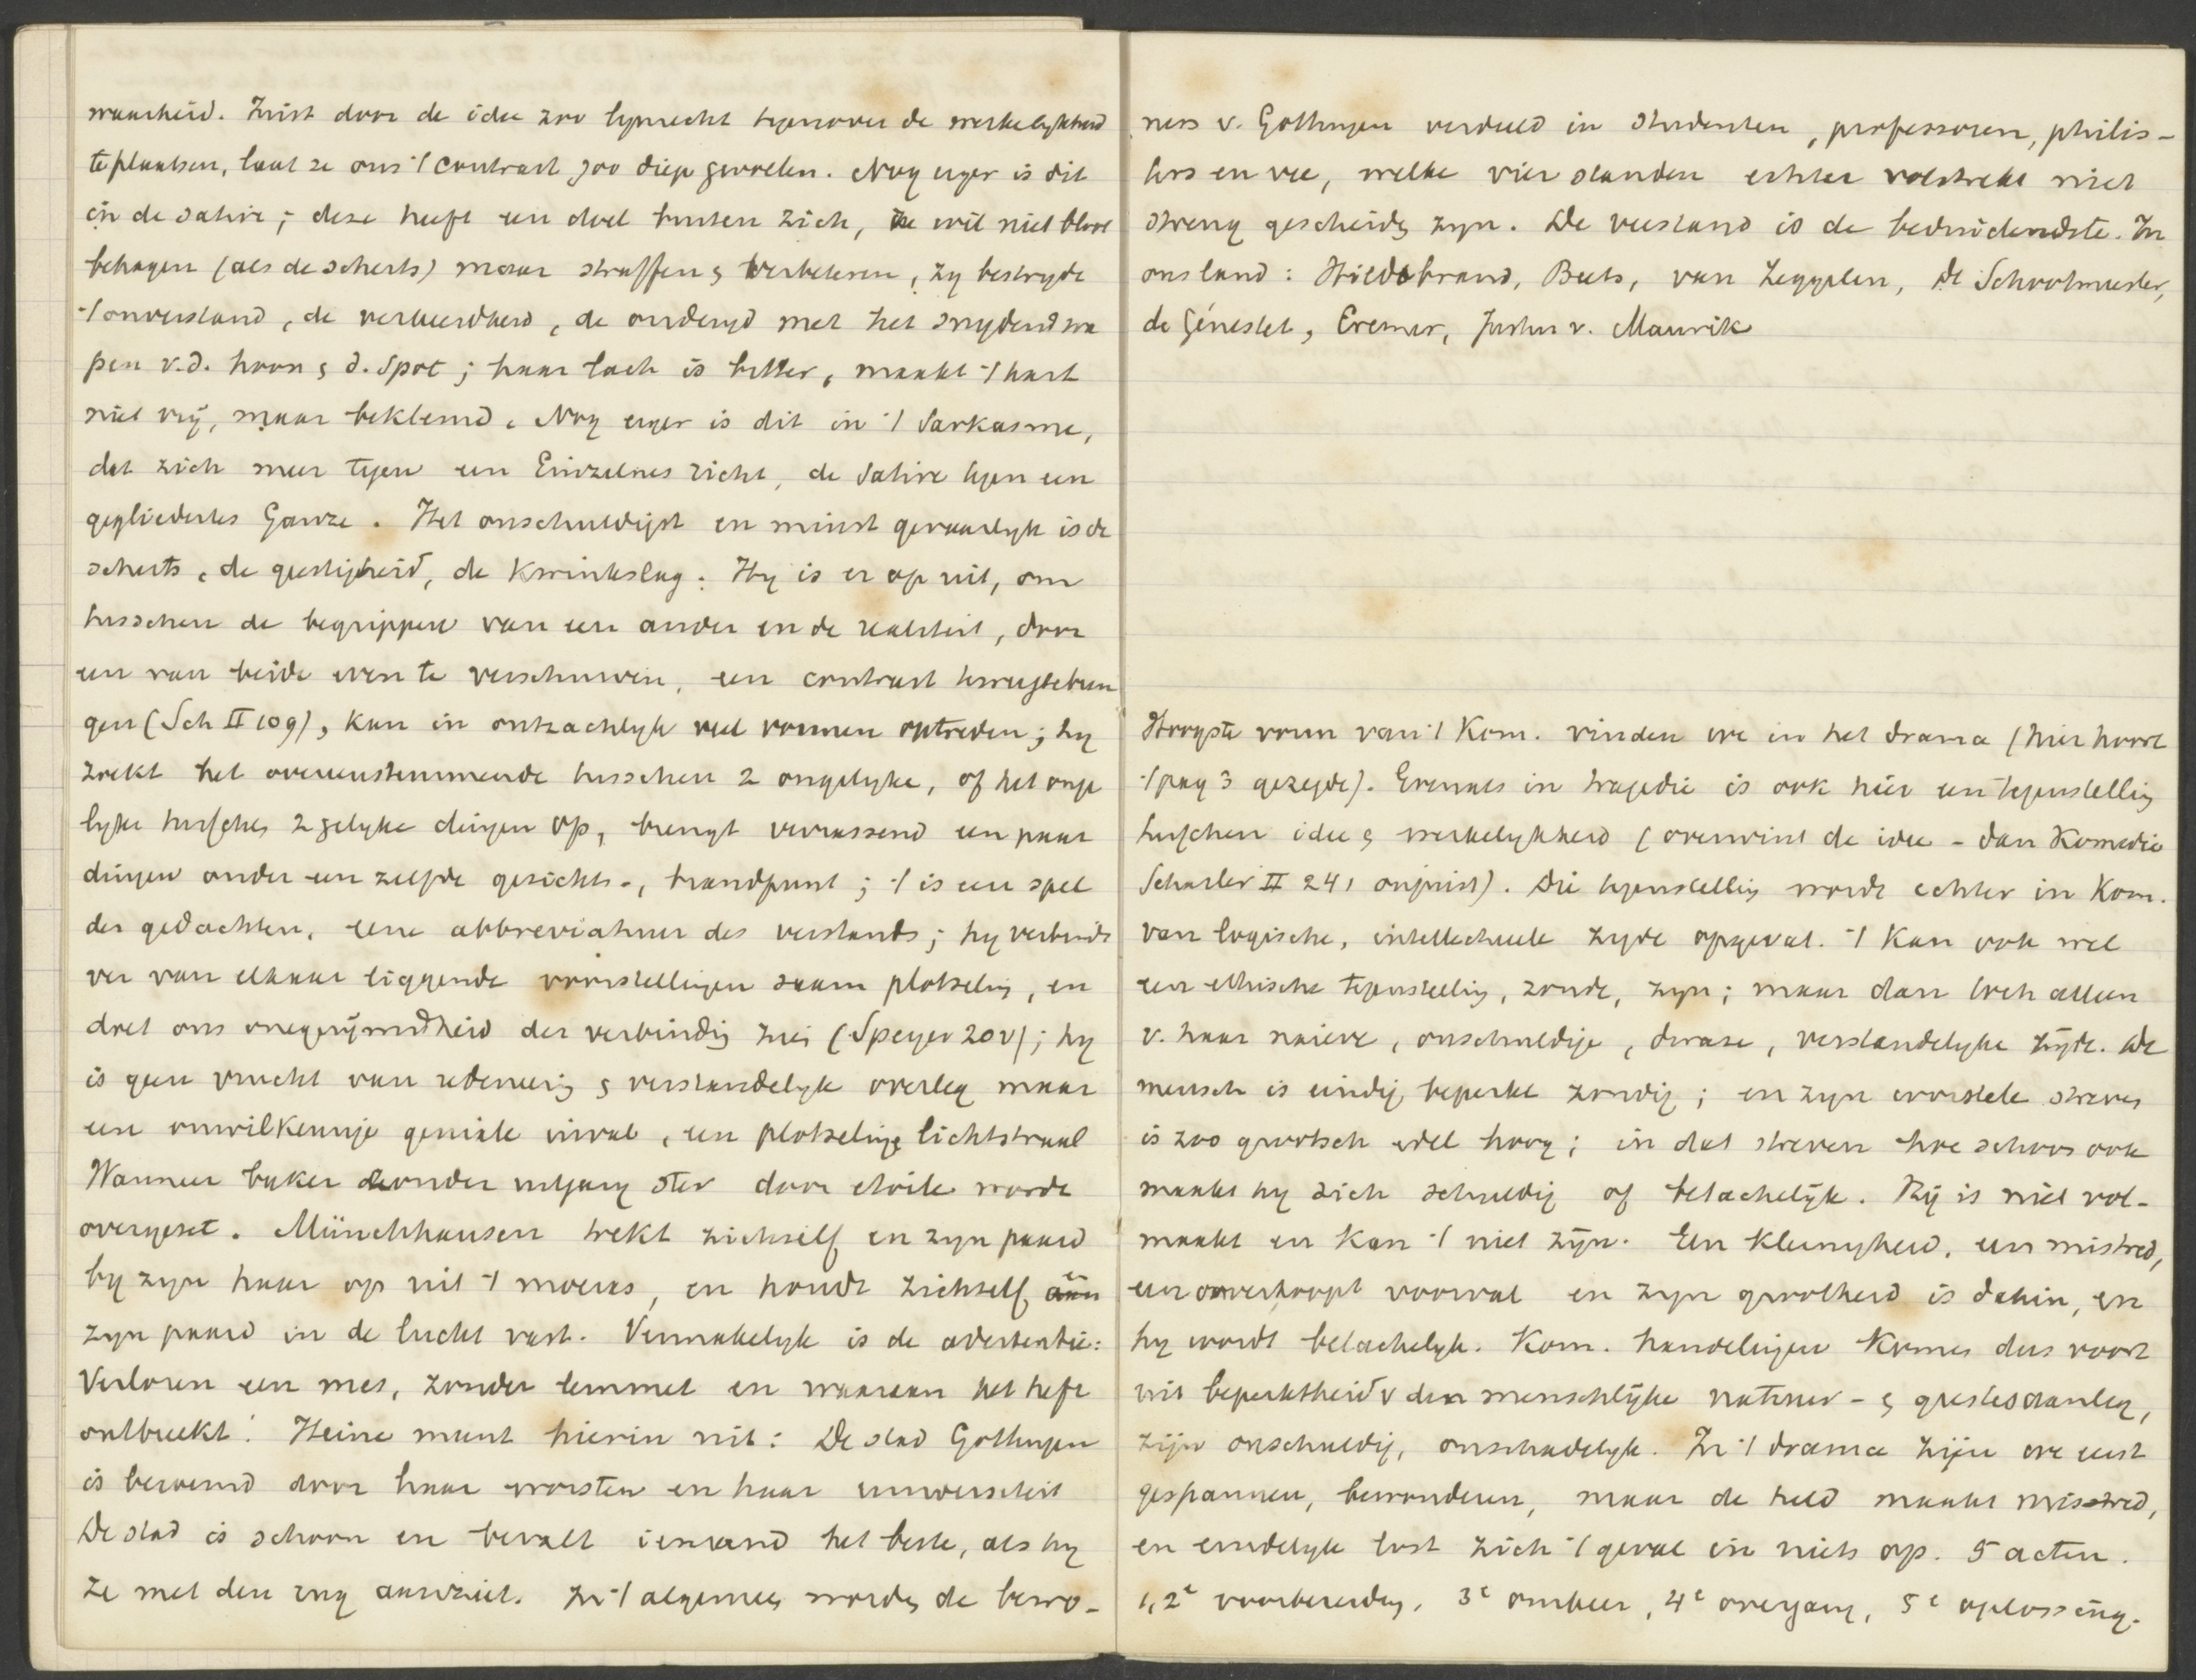 waarheid. Juist door de idee zoo lynrecht tegenover de werkelykheid
te plaatsen, laat ze ons 't contrast zoo diep gevoelen. Nog erger is dit
in de satire; deze heeft een doel buiten zich, ze wil niet bloot
behagen (als de scherts) maar straffen & verbeteren, zy bestrydt
't onverstand, de verkeerdheid, de ondeugd met het snydend wa
pen v.d. hoon & d. spot; haar lach is bitter, maakt 't hart
niet vrij, maar beklemd. Nog erger is dit in 't Sarkasme,
dat zich meer tegen een Einzelnes richt, de Satire tegen een
gegliedertes Ganze. Het onschuldigst en minst gevaarlyk is de
scherts, de geestigheid, de Kwinkslag. Hy is er op uit, om
tusschen de begrippen van een ander en de realiteit, door
een van beide even te verschuiven, een contrast terug te bren
gen (Sch II 109), kan in ontzachlyk veel vormen optreden; hy
zoekt het overeenstemmende tusschen 2 ongelyke, of het onge
lyke tusschen 2 gelyke dingen op, brengt verrassend een paar
dingen onder een zelfde gezichts-, standpunt; 't is een spel
der gedachten, eene abbreviatuur des verstands; hy verbindt
ver van elkaar liggende voorstellingen saam plotseling, en
doet ons ongerijmdheid der verbinding zien (Speyer 20v); hy
is geen vrucht van redeneering & verstandelyk overleg maar
een onwillekeurige geniale inval, een plotselinge lichtstraal
Wanneer baker zonder uitgang ster door etoile wordt
overgezet. Münchhausen trekt zichzelf en zyn paard
by zyn haar op uit 't moeras, en houdt zichzelf en
zyn paard in de lucht vast. Vermakelyk is de advertentie:
Verloren een mes, zonder lemmet en waaraan het heft
ontbreekt! Heine munt hierin uit: De stad Gottingen
is beroemd door haar worsten en haar universiteit
De stad is schoon en bevalt iemand het beste, als hy
ze met den rug aanziet. In 't algemeen worden de bewo-
ners v. Gottingen verdeeld in studenten, professoren, philis-
ters en vee, welke vier standen echter volstrekt niet
streng gescheiden zyn. De veestand is de beduidendste. In
ons land: Hildebrand, Beets, van Zeggelen, de Schoolmeester,
de Génestet, Cremer, Justus v. Maurik
Hoogste vorm van 't Kom. vinden we in het drama (hier hoort
't pag 3 gezegde). Evenals in tragedie is ook hier een tegenstelling
tusschen idee & werkelykheid (overwint de idee - dan Komedie
Schasler II 241 onjuist). Die tegenstelling wordt echter in Kom.
van logische, intellectueele zyde opgevat. 't Kan ook wel
een ethische tegenstelling, zonde, zyn; maar dan toch alleen
v. haar naieve, onschuldige, dwaze, verstandelyke zijde. De
mensch is eindig beperkt zondig; en zyn worstelen streven
is zoo grootsch edel hoog; in dat streven hoe schoon ook
maakt hy zich schuldig of belachelijk. Hij is niet vol-
maakt en kan 't niet zijn. Een kleinigheid, een mistred,
een onverhoopt voorval en zyn grootheid is dahin, en
hy wordt belachelyk. Kom. handelingen komen dus voort
uit beperktheid v den menschlijke natuur- & geestesaanleg,
zijn onschuldig, onschadelyk. In 't drama zijn we eerst
gespannen, bewonderen, maar de held maakt misstred,
en eindelyk lost zich 't geval in niets op. 5 acten.
1, 2e voorbereiding, 3e ommekeer, 4e overgang, 5e oplossing.